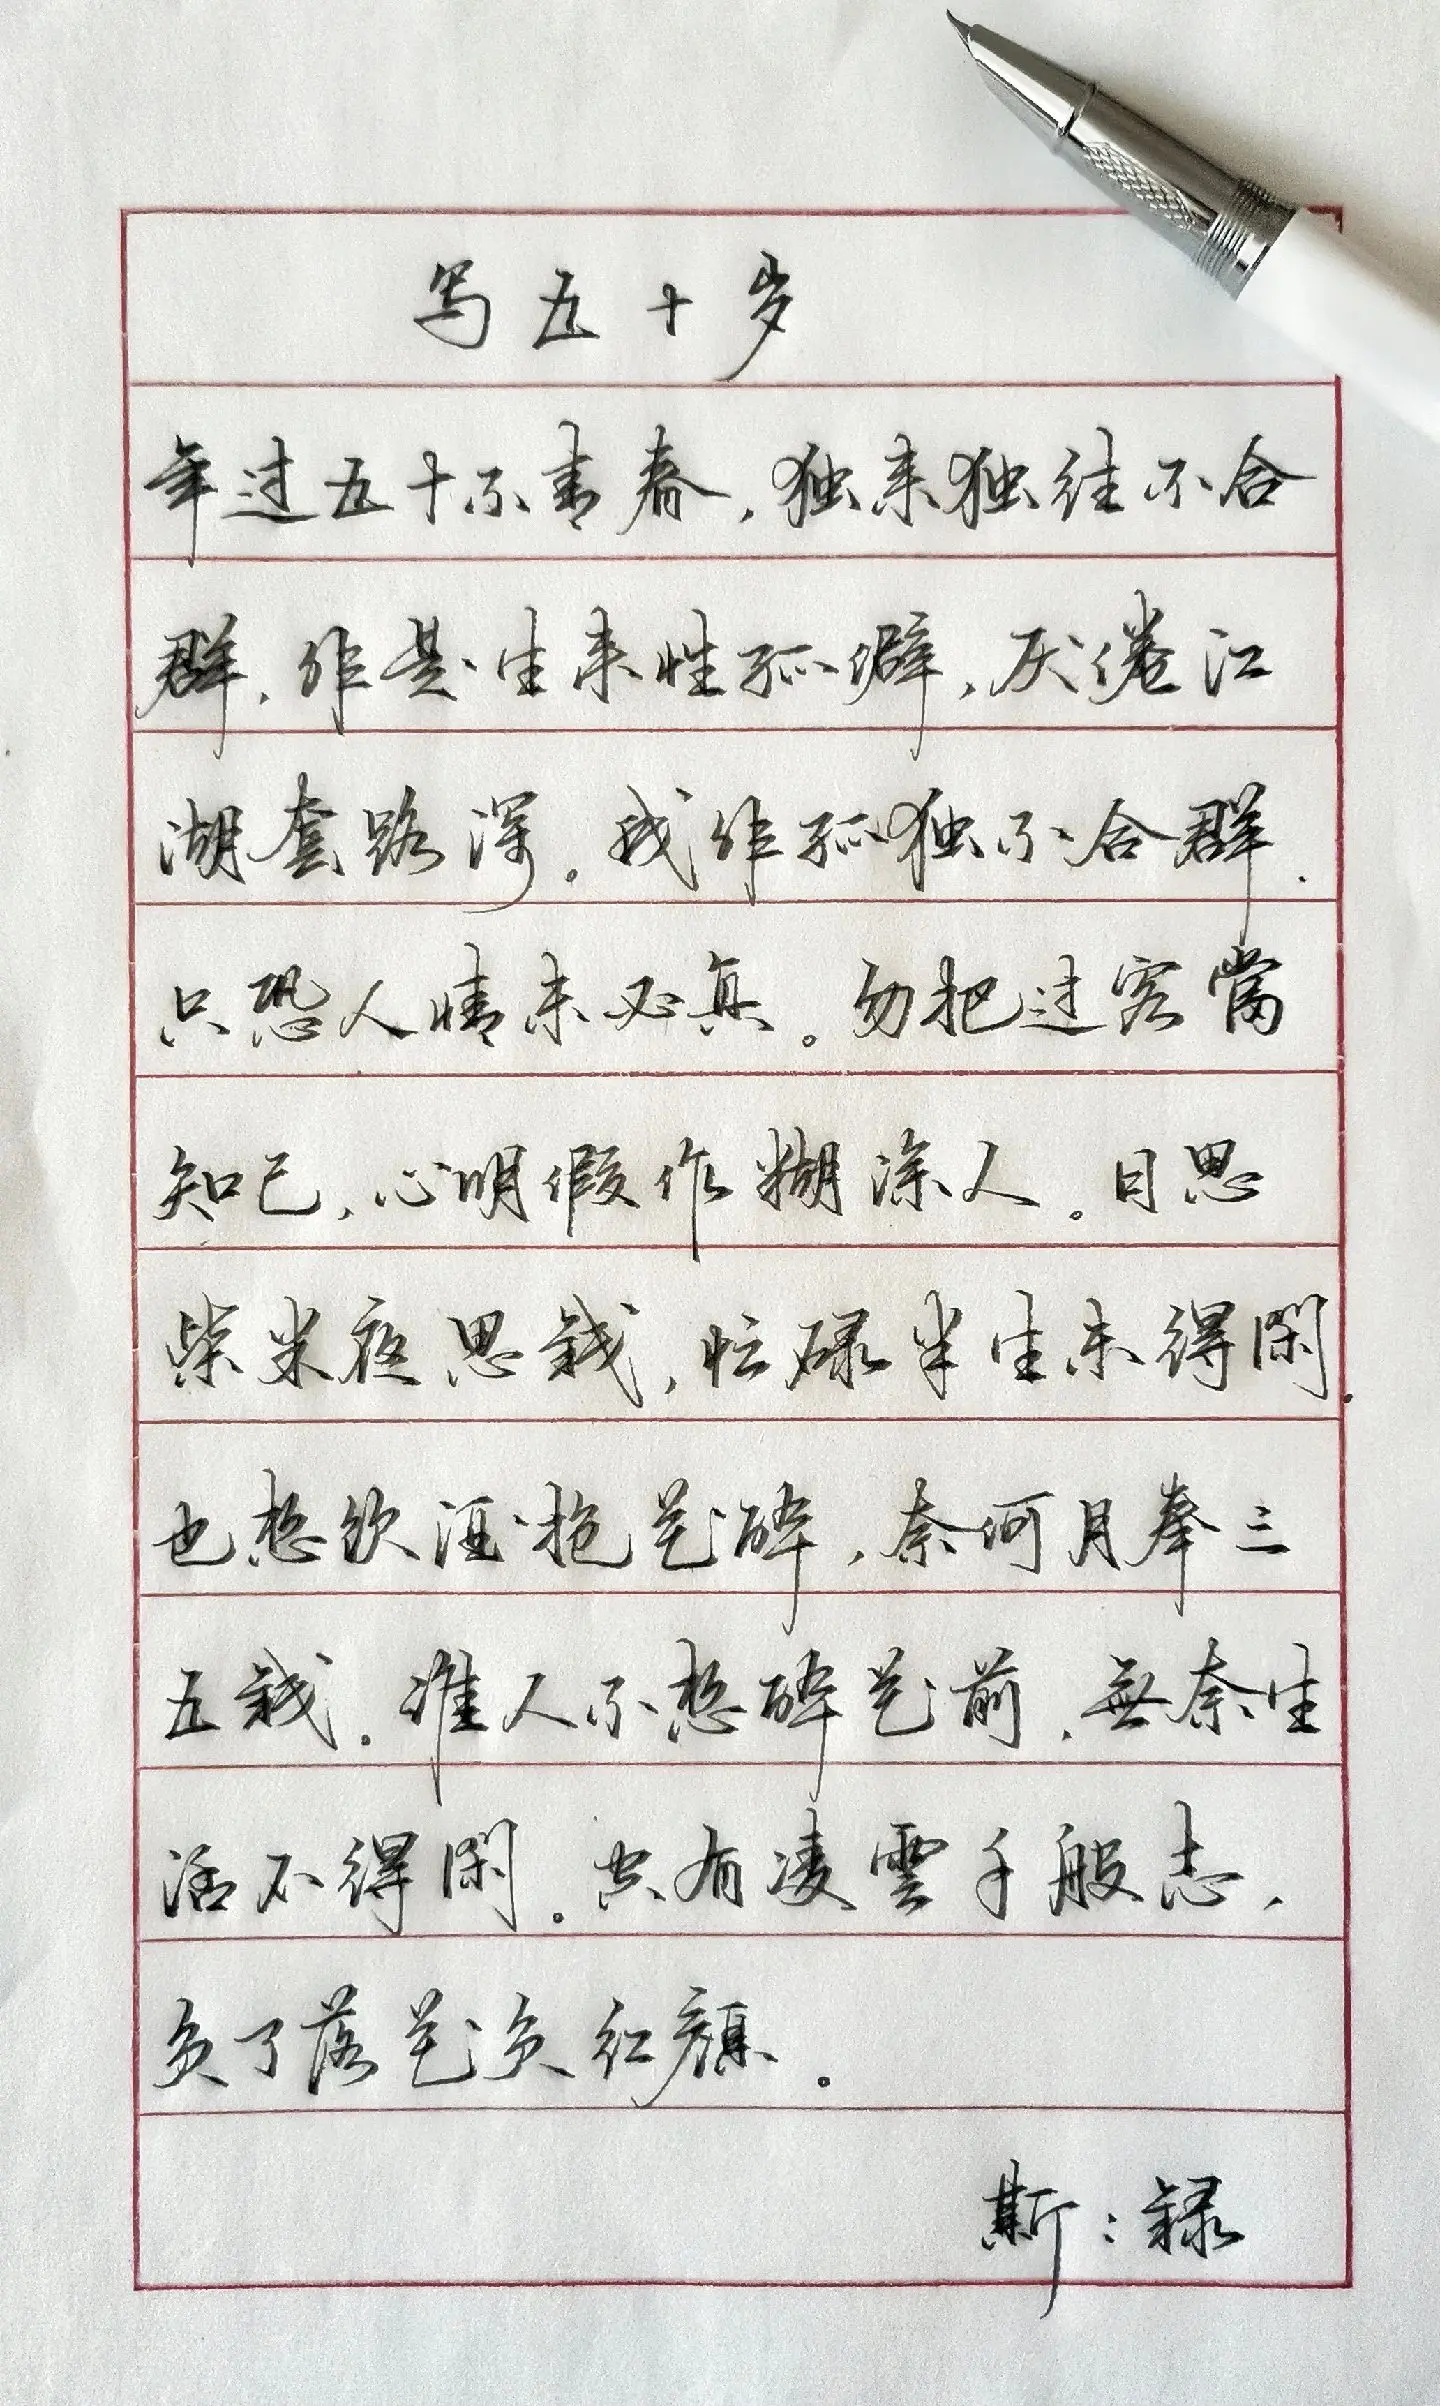 写五十岁
年过五十不青春，独来独往不合
群，非是生来性孤僻，厌倦江
湖套路深。我非孤独不合群.
只恐人情未必真。勿把过客當
知己，心明假作糊涂人。日思
柴米夜思銭，忙碌半生未得閑.
也想饮酒抱花醉，奈何月奉三
五銭。谁人不想醉花前，無奈生
活不得閑。空有凌雲千般志，
负了落花负红颜。
斯：録